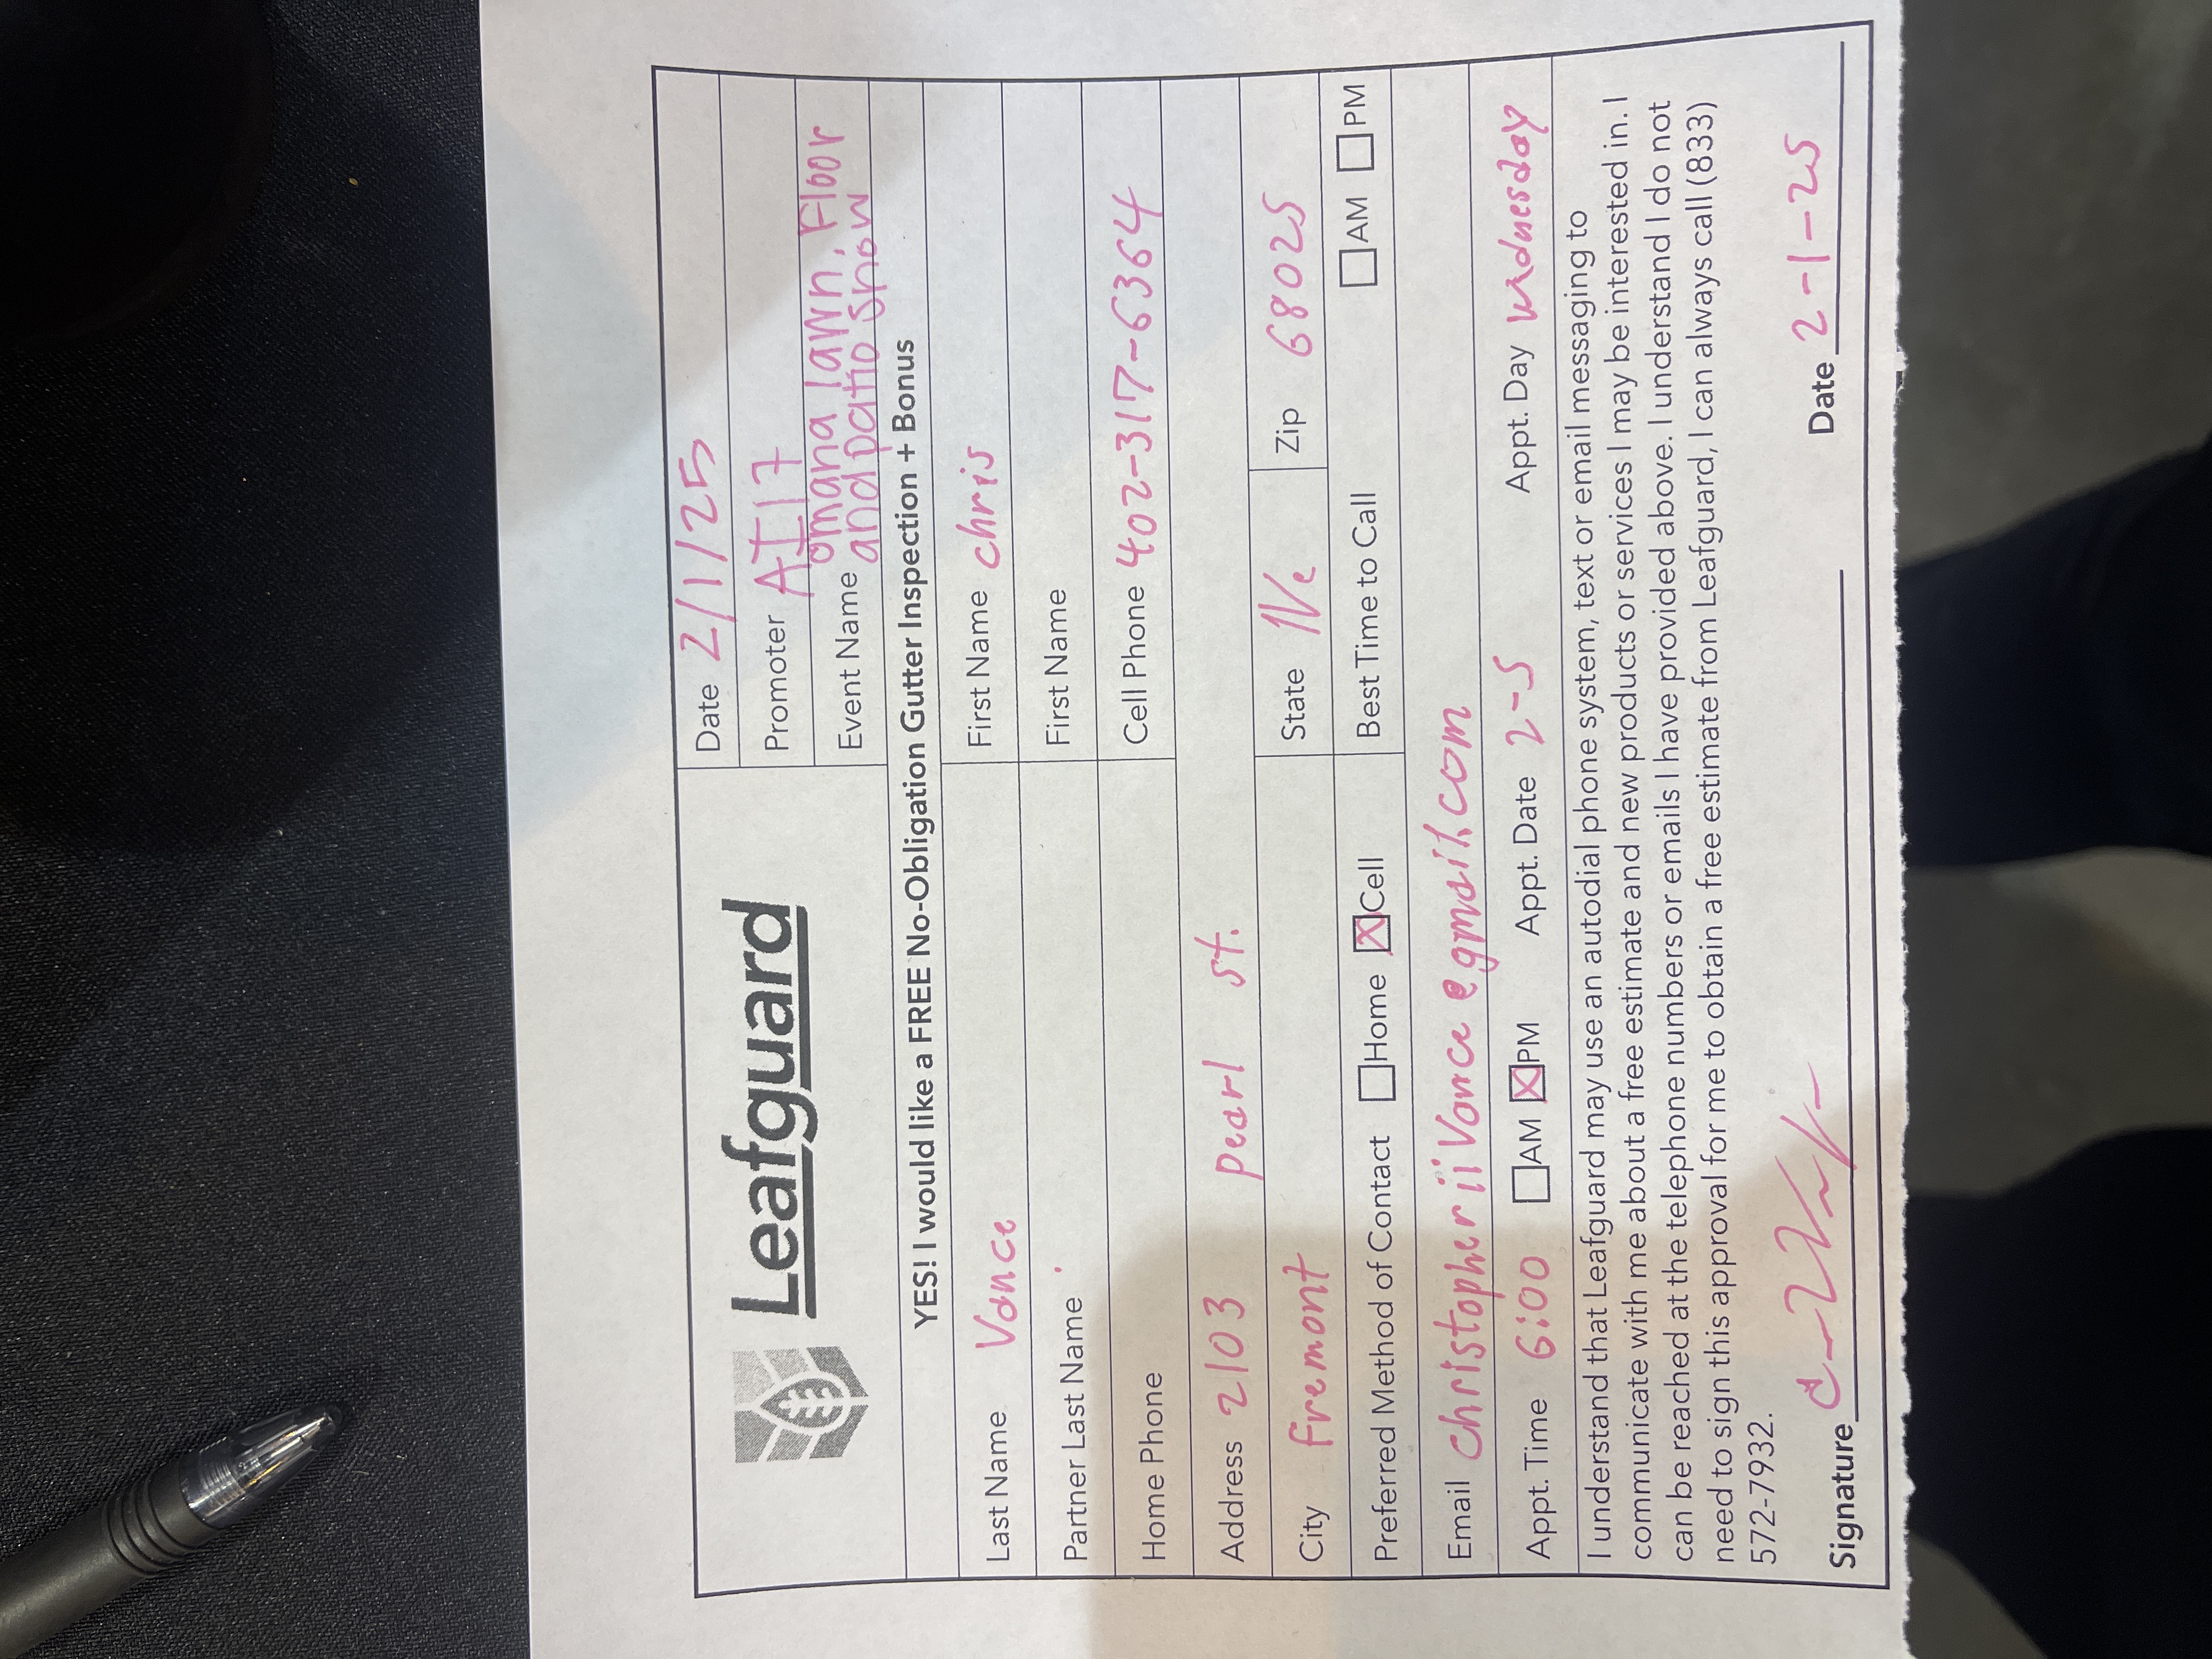 Leafguard
Date 2/1/25
Promoter AI17
Event Name omaha lawn, Floor
and patio show
YES! I would like a FREE No-Obligation Gutter Inspection + Bonus
Last Name Vance First Name chris
Partner Last Name First Name
Home Phone Cell Phone 402-317-6364
Address 2103 pearl st.
City Fremont State Ne Zip 68025
Preferred Method of Contact Home X Cell Best Time to Call AM PM
Email christopheriiVance@gmail.com
Appt. Time 6:00 AM X PM Appt. Date 2-5 Appt. Day Wednesday
I understand that Leafguard may use an autodial phone system, text or email messaging to
communicate with me about a free estimate and new products or services I may be interested in. I
can be reached at the telephone numbers or emails I have provided above. I understand I do not
need to sign this approval for me to obtain a free estimate from Leafguard, I can always call (833)
572-7932.
Signature Date 2-1-25